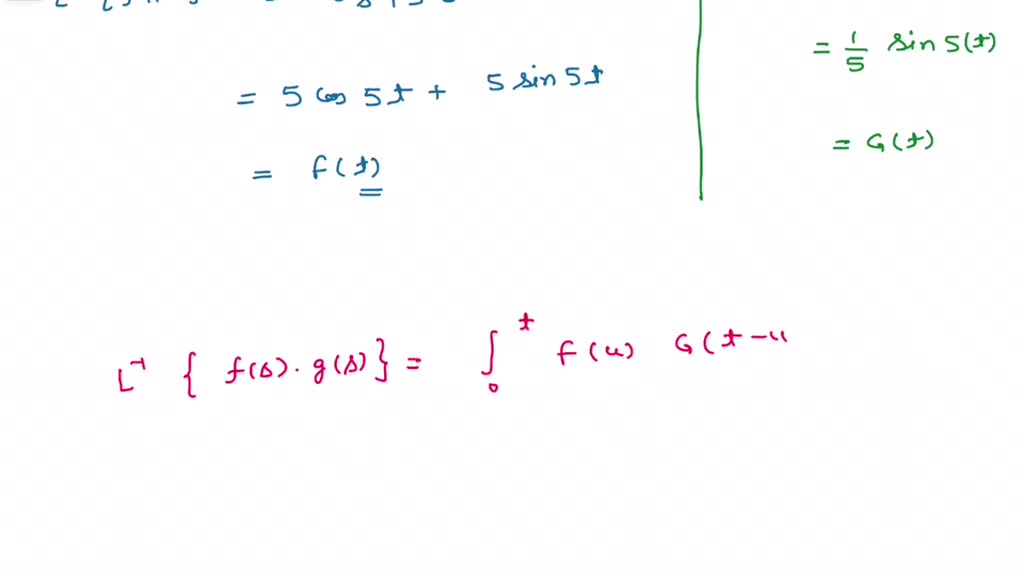 = 5 cos 5t + 5 sin 5t
= F(t)
= 1/5 sin 5(t)
= G(t)
L⁻¹ { f(s) . g(s) } = ∫₀ᵗ F(u) G(t-u